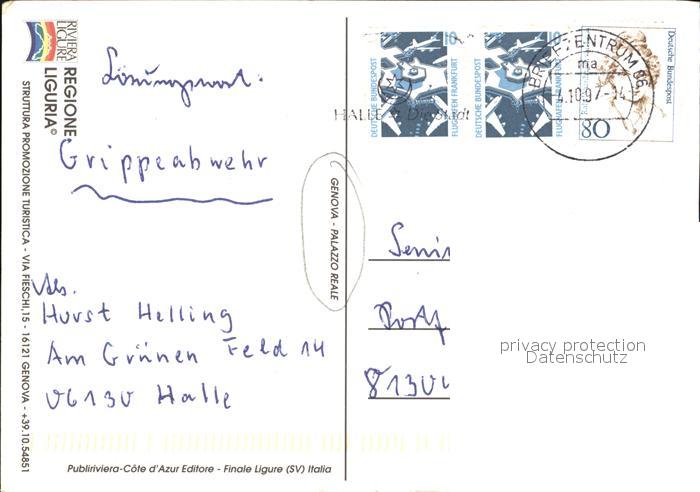 RIVIERA
LIGURE
REGIONE
LIGURIA©
STRUTTURA PROMOZIONE TURISTICA - VIA FIESCHI,15 - 16121 GENOVA - +39.10.54851
Lösungswort:
Grippeabwehr
Abs.
Horst Helling
Am Grünen Feld 14
06130 Halle
Publiriviera-Côte d'Azur Editore - Finale Ligure (SV) Italia
GENOVA - PALAZZO REALE
HALLE * Die Stadt
DEUTSCHE BUNDESPOST
10
FLUGHAFEN FRANKFURT
DEUTSCHE BUNDESPOST
10
FLUGHAFEN FRANKFURT
Deutsche Bundespost
80
BRIEFZENTRUM 06
ma
4.10.97-14
Senio
Postf
8130
privacy protection
Datenschutz